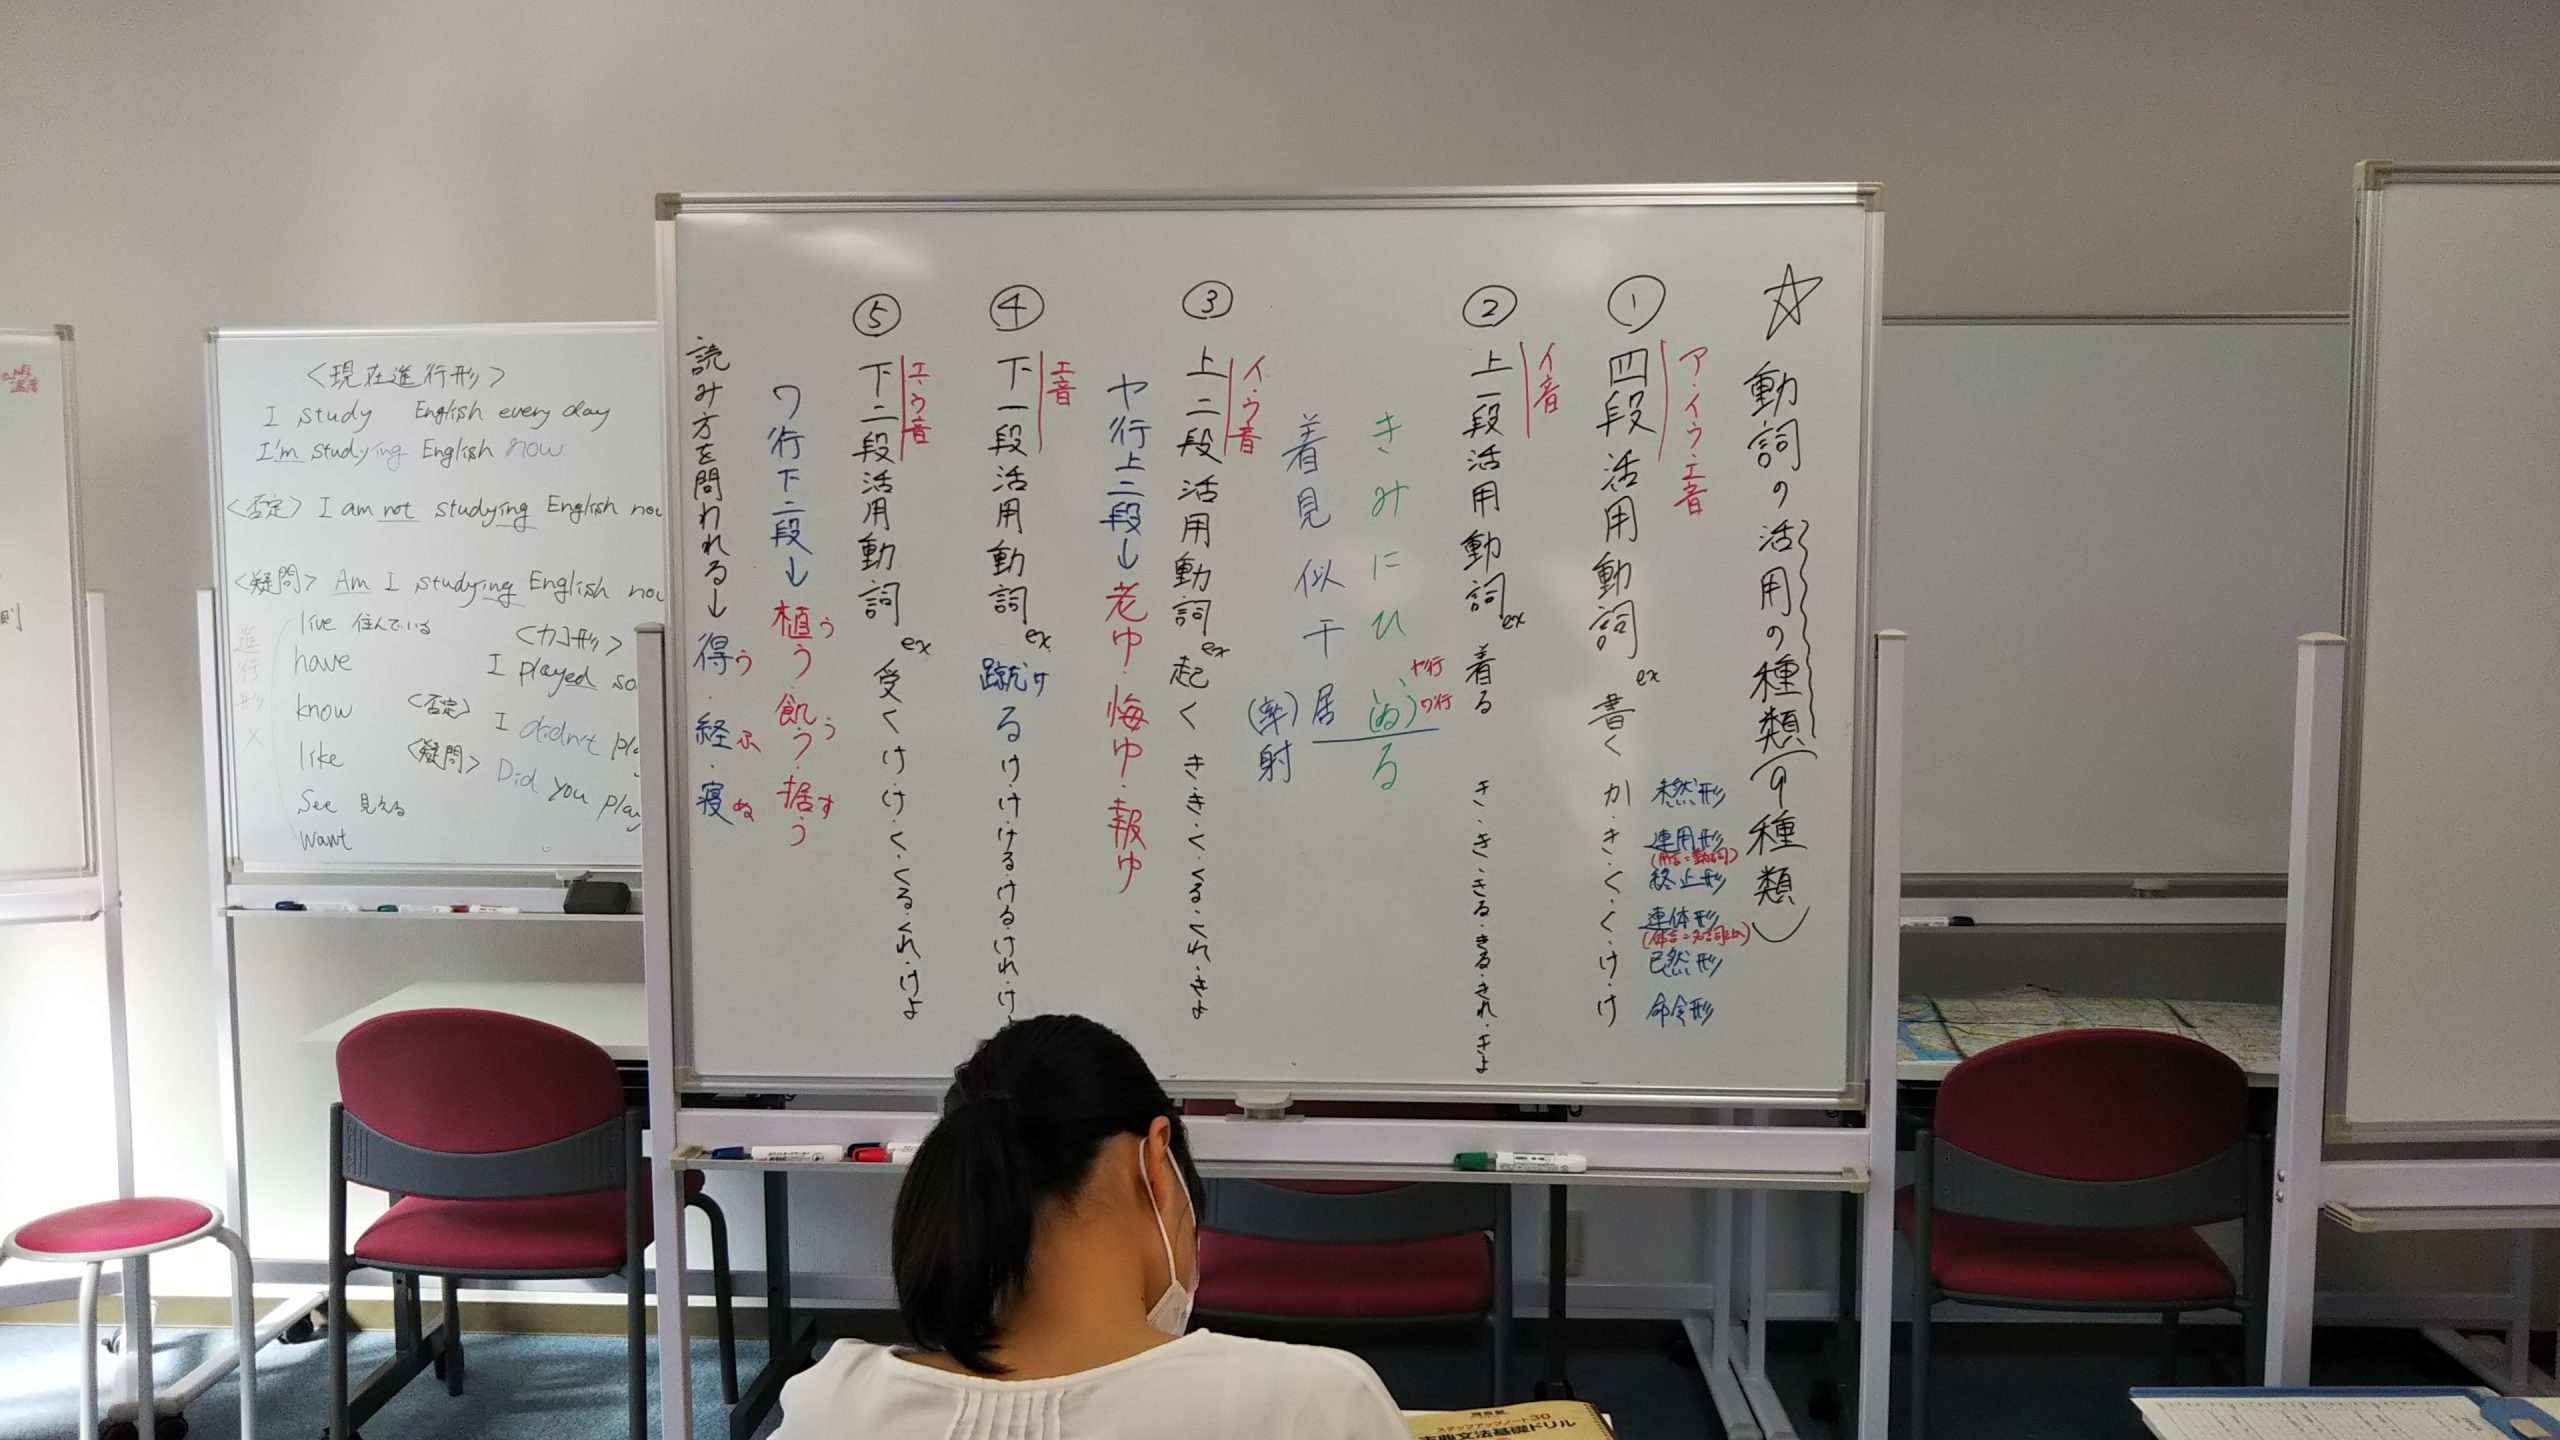 ☆ 動詞の活用の種類(9種類)
ア・イ・ウ・エ音
① 四段活用動詞 ex 書く か・き・く・く・け・け
未然形
連用形
(用言=動詞)
終止形
連体形
已然形
命令形
イ音
② 上一段活用動詞 ex 着る き・き・きる・きる・きれ・きよ
きみにひい(ゐ)る
ヤ行
ワ行
着見似干居
(率)射
イ・ウ音
③ 上二段活用動詞 ex 起く き・き・く・くる・くれ・きよ
ヤ行上二段→老ゆ・悔ゆ・報ゆ
エ音
④ 下一段活用動詞 ex 蹴る け・け・ける・ける・けれ・け
け
エ・ウ音
⑤ 下二段活用動詞 ex 受く け・け・く・くる・くれ・けよ
ワ行下二段→植う・飢う・据う
う う す
読み方を問われる→得・経・寝
う ふ ぬ
<現在進行形>
I study English every day
I'm studying English now
<否定> I am not studying English now
<疑問> Am I studying English now
進行形×
live 住んでいる
have
know
like
see 見える
want
I played so
<否定> I didn't pl
<疑問> Did you play
ステップアップノート30
古典文法基礎ドリル